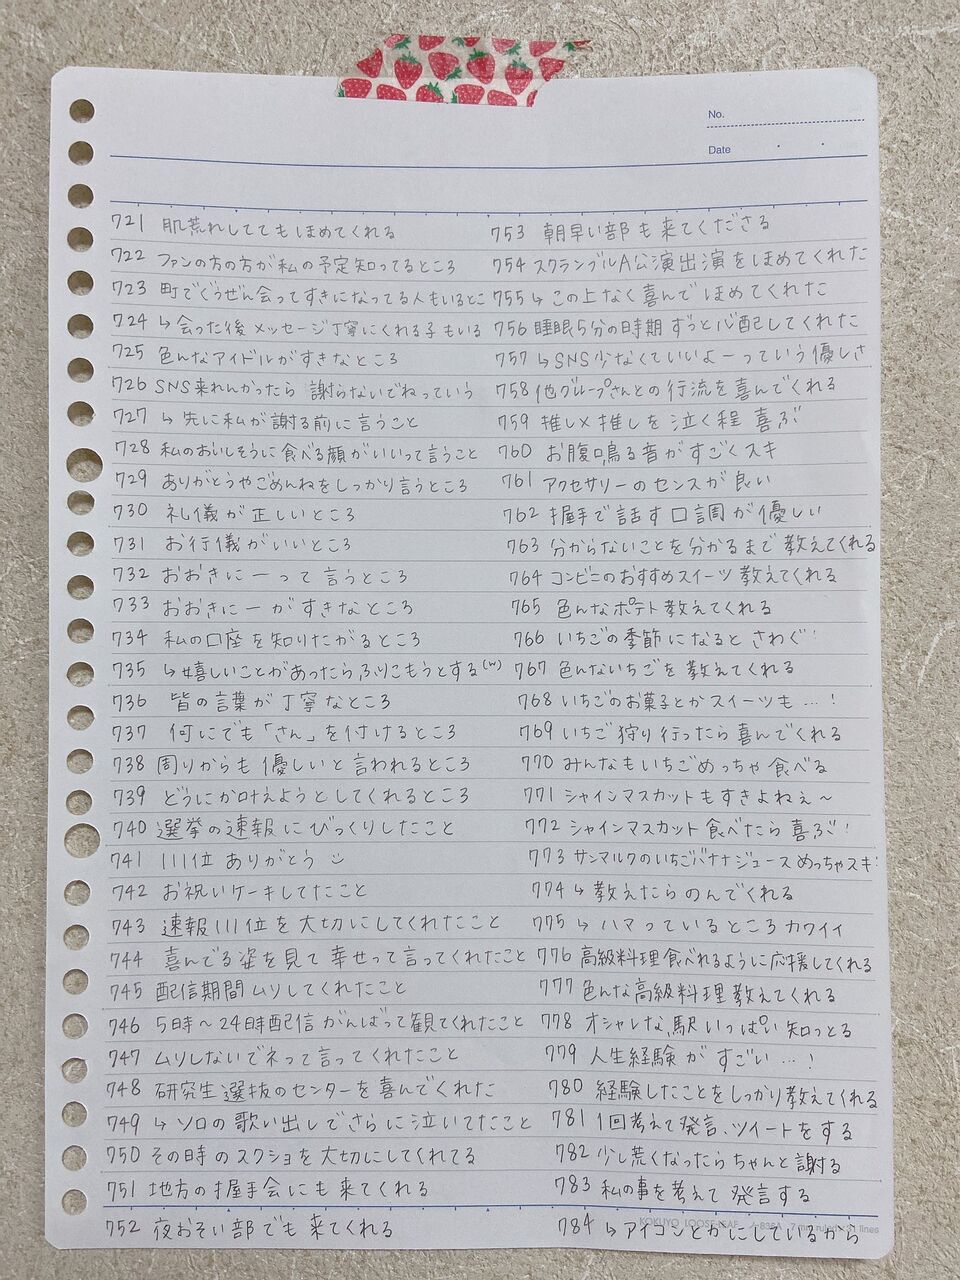 No.
Date
721 肌荒れしててもほめてくれる
722 ファンの方の方が私の予定知ってるところ
723 町でぐうぜん会ってすきになってる人もいるとこ
724 ↳ 会った後メッセージ丁寧にくれる子もいる
725 色んなアイドルがすきなところ
726 SNS来れんかったら 謝らないでねっていう
727 ↳ 先に私が謝る前に言うこと
728 私のおいしそうに食べる顔がいいって言うこと
729 ありがとうやごめんねをしっかり言うところ
730 礼儀が正しいところ
731 お行儀がいいところ
732 おおきにーって言うところ
733 おおきにーがすきなところ
734 私の口座を知りたがるところ
735 ↳嬉しいことがあったらふりこもうとする(w)
736 皆の言葉が丁寧なところ
737 何にでも「さん」を付けるところ
738 周りからも優しいと言われるところ
739 どうにか叶えようとしてくれるところ
740 選挙の速報にびっくりしたこと
741 111位 ありがとう
742 お祝いケーキしてたこと
743 速報111位を大切にしてくれたこと
744 喜んでる姿を見て幸せって言ってくれたこと
745 配信期間ムリしてくれたこと
746 5時〜24時配信がんばって観てくれたこと
747 ムリしないでネって言ってくれたこと
748 研究生選抜のセンターを喜んでくれた
749 ↳ ソロの歌い出しでさらに泣いてたこと
750 その時のスクショを大切にしてくれてる
751 地方の握手会にも来てくれる
752 夜おそい部でも来てくれる
753 朝早い部も来てくださる
754 スクランブルA公演出演をほめてくれた
755 ↳ この上なく喜んでほめてくれた
756 睡眠5分の時期ずっと心配してくれた
757 ↳SNS少なくていいよーっていう優しさ
758 他グループさんとの行流を喜んでくれる
759 推し×推しを泣く程喜ぶ
760 お腹鳴る音がすごくスキ
761 アクセサリーのセンスが良い
762 握手で話す口調が優しい
763 分からないことを分かるまで教えてくれる
764 コンビニのおすすめスイーツ教えてくれる
765 色んなポテト教えてくれる
766 いちごの季節になるとさわぐ!
767 色んないちごを教えてくれる
768 いちごのお菓子とかスイーツも…!
769 いちご狩り行ったら喜んでくれる
770 みんなもいちごめっちゃ食べる
771 シャインマスカットもすきよねぇ〜
772 シャインマスカット食べたら喜ぶ!
773 サンマルクのいちごバナナジュースめっちゃスキ!
774 ↳ 教えたらのんでくれる
775 ↳ ハマっているところカワイイ
776 高級料理食べれるように応援してくれる
777 色んな高級料理教えてくれる
778 オシャレな駅いっぱい知っとる
779 人生経験がすごい…!
780 経験したことをしっかり教えてくれる
781 1回考えて発言、ツイートをする
782 少し荒くなったらちゃんと謝る
783 私の事を考えて発言する
784 ↳アイコンとかにしているから
KOKUYO LOOSE-LEAF